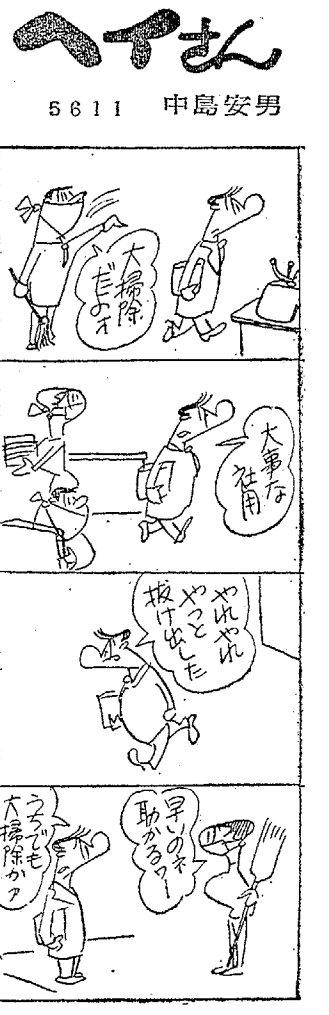 ヘイさん
5611 中島安男
大掃除
だのオ
大事な
社用
やれやれ
やっと
抜け出した
早いのネ
助かるワー
うちでも
大掃除かァ